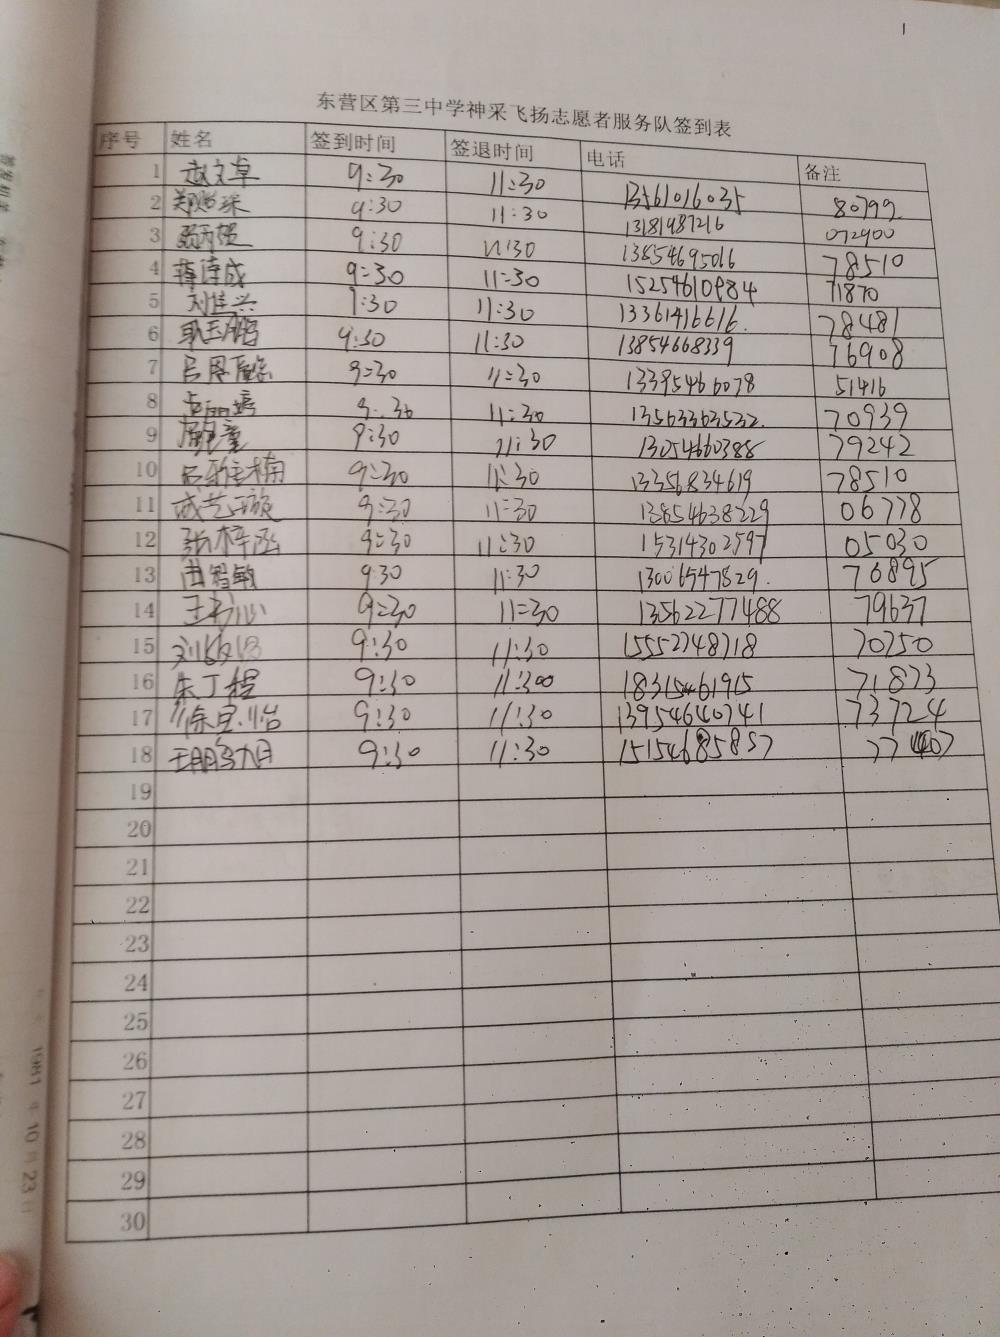 1
东营区第三中学神采飞扬志愿者服务队签到表
序号 姓名 签到时间 签退时间 电话 备注
1 赵文卓 9:30 11:30 13561016035 80799
2 9:30 11:30 13181987216 072900
3 9:30 11:30 13854695016 78510
4 蒋清成 9:30 11:30 15254610984 71870
5 刘佳兴 9:30 11:30 13361416616. 78481
6 耿玉鹏 9:30 11:30 13854668339 76908
7 9:30 11:30 13395466078 51416
8 9:30 11:30 13563363532. 70939
9 9:30 11:30 13054660388 79242
10 吕雅楠 9:30 11:30 13356834619 78510
11 成艺璇 9:30 11:30 13854638229 06778
12 张梓涵 9:30 11:30 15314302597 05030
13 曲智敏 9:30 11:30 13006547829. 76895
14 9:30 11:30 13562277488 79637
15 9:30 11:30 15552748718 70750
16 朱丁程 9:30 11:300 18315461915 71873
17 徐宝怡 9:30 11:30 13954640741 73724
18 9:30 11:30 15154685857
19
20
21
22
23
24
25
26
27
28
29
30
1981年10月23日